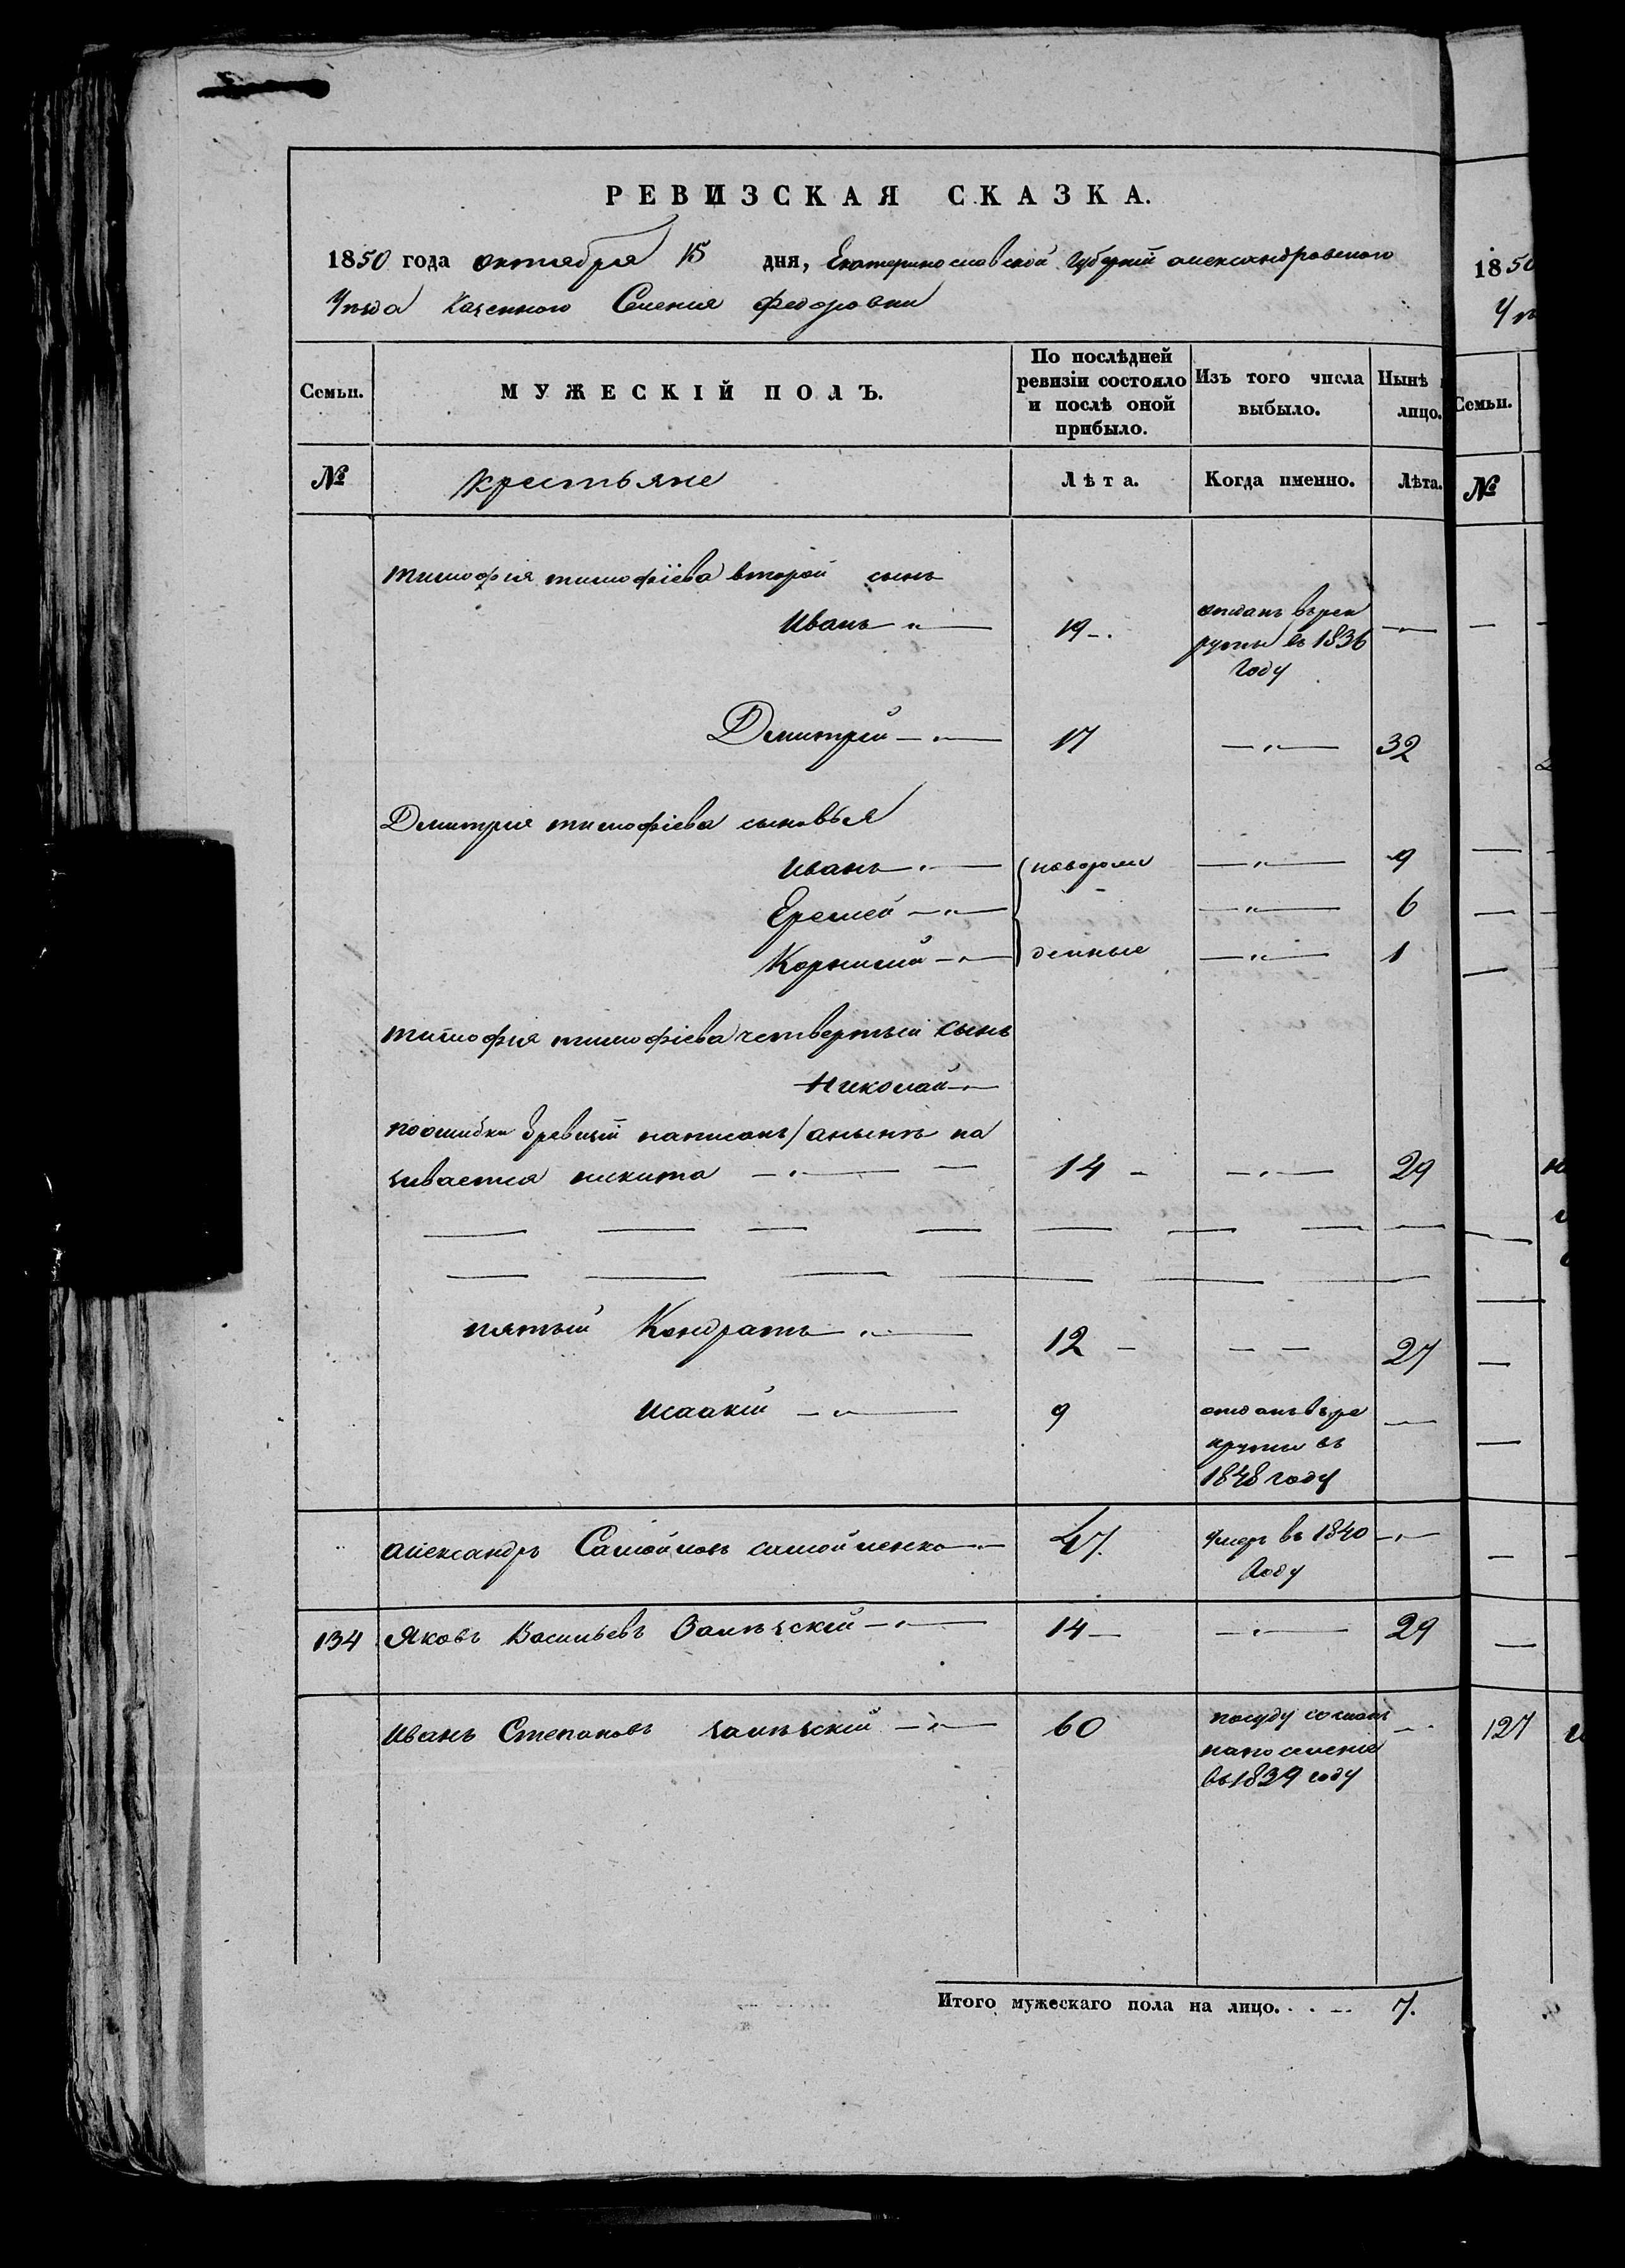 РЕВИЗСКАЯ СКАЗКА.
1850 года октября 15 дня, Екатеринославской Губерніи александровского
Уѣзда Казенного Селенія федоровки
Семьи.
МУЖЕСКІЙ ПОЛЪ.
По послѣдней ревизіи состояло и послѣ оной прибыло.
Изъ того числа выбыло.
Нынѣ лицо.
№
крестьяне
Лѣта.
Когда именно.
Лѣта.
тимофія тимофіева второй сынъ
Иванъ 19 отданъ врек
руты въ 1836
Году
Дмитрій 17 32
Дмитрія тимофіева сыновья
Иванъ новорож 9
Еремей 6
Корнилій денные 1
тимофія тимофіева четвертый сынъ
Николай
поошибки вревизіи написанъ/анынѣ на
зивается никита 14 29
пятый Кондратъ 12 27
Исаакій 9 отданъ вре
круты въ
1848 году
александръ Самойловъ самойленко 47. умеръ въ 1840
Году
134 Яковъ Васильевъ Залѣзскій 14 29
Иванъ Степановъ залѣзскій 60 посуду сосланъ
напоселеніе
въ1839 году
Итого мужескаго пола на лицо. 7.
1850
Семьи.
№
127